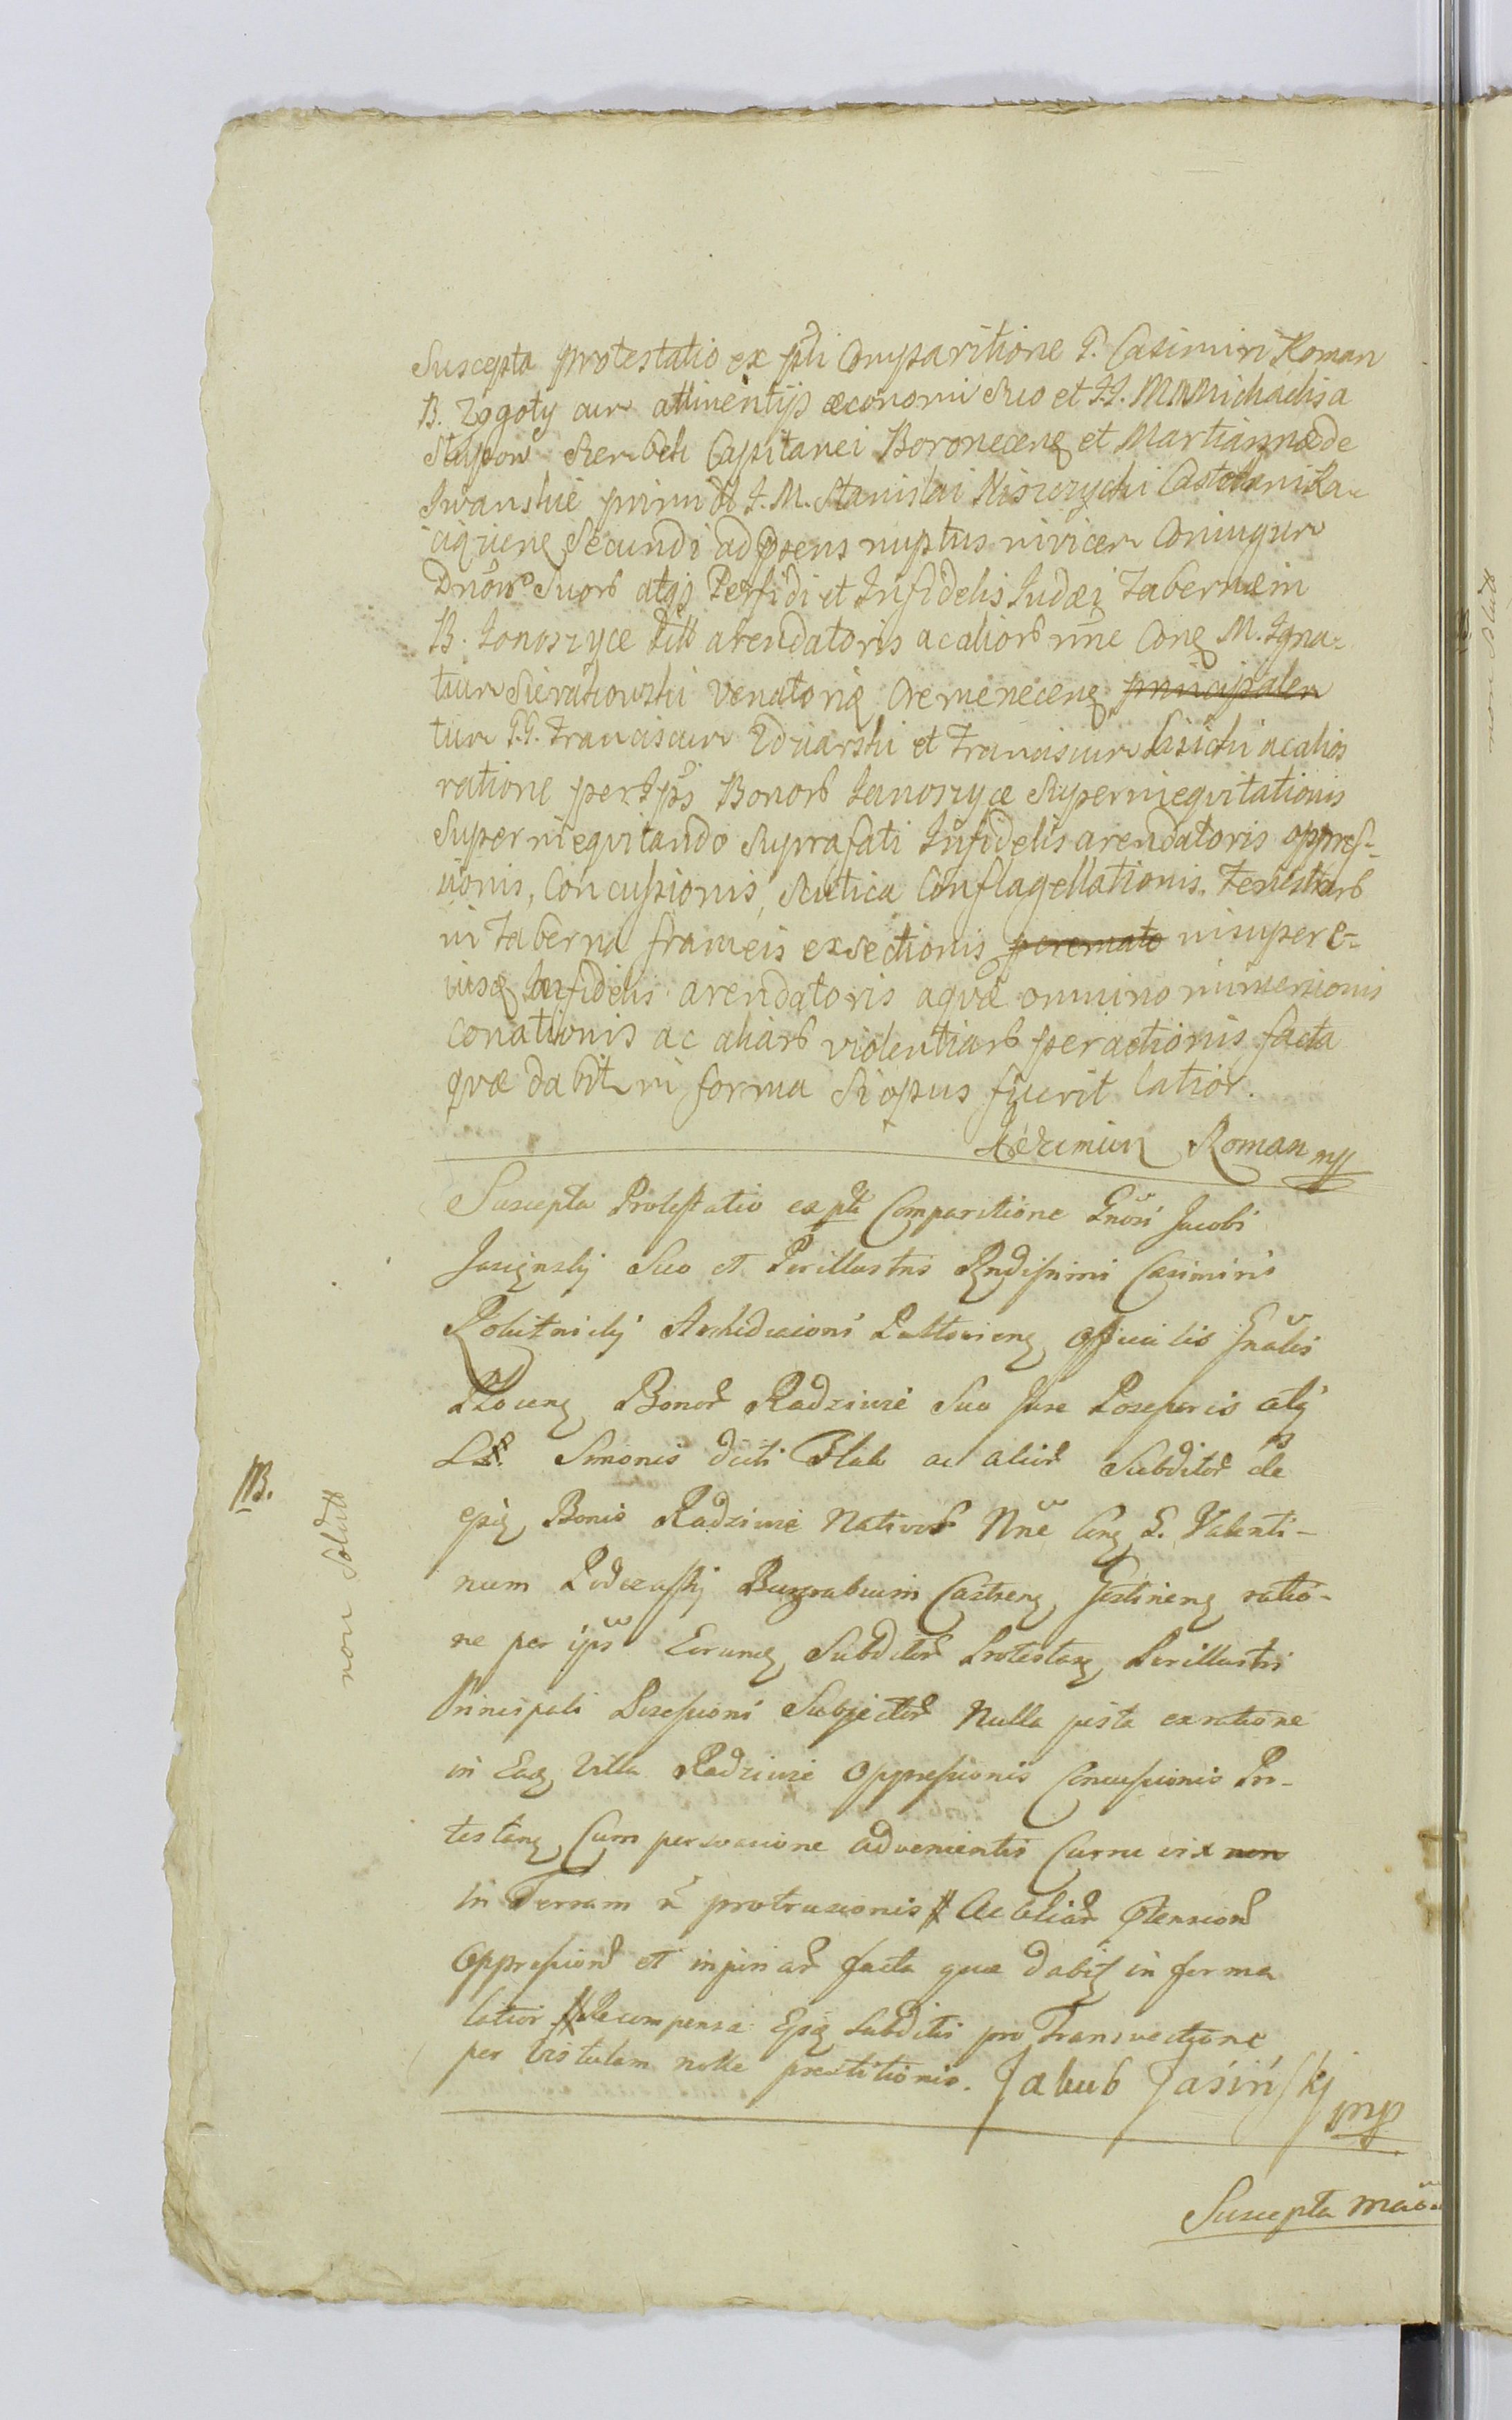 Suscepta protestatio ex ptli Comparitione G. Casimiri Roman
B. Zegoty cum attinentijs œconomi suo et I.I. M.M. Michaelis a
Słupow Skerbek Capitanei Boroneceng et Martiannæ de
Iwanskie primi tt I. M. Stanislai Nisczycki Castellani Ra-
ciąziens Secundi ad prsens nuptus invicem Coniugum
Dnõrũ Suorũ atqz Perfidi et Infidelis Iudæi Tabernæ in
B. Ionoszyce dtt arendatoris ac aliorũ nne Cong M. Igna-
tium Sierakowski Venatorẽ Cremeneceng principalem
tum G.G. Franciscum Zdziarski et Franciscum Lisicki ac alios
ratione per Ipsõ Bonorũ Ianoszyce Superinequitationis
Superinequitando Suprafati Infidelis arendatoris oppres-
sionis, Concussionis, Scutica Conflagellationis. Fenestrarũ
in Taberna frameis exsectionis peremato insuper e-
iusdẽ Infidelis arendatoris aquæ omnino nimersionis
Conationis ac aliarũ violentiarũ peractionis facta
quæ dabitr in forma si opus fuerit latior.
Roman mp
Suscepta Protestatio ex ptli Comparitione Gnosi Jacobi
Jasienskÿ Suo et Perillustris Rndissimi Casimiris
Rokitnickÿ Archidiaconi Pultovieng officialis Gnalis
Ploceng Bonorũ Radziwie Suo Iure Possesoris atqz
LL. Simonis dicti Flak ac aliorũ Subditorũ de
eysdẽ Bonis Radziwie Nativorũ Nne Cong G. Valenti-
num Podczaskÿ Burgrabium Castreng Gostineng ratio-
ne per ipsũ Eorundẽ Subditorũ Protestang Perillustri
Principali Possessioni Subjectorũ Nulla justa ex ratione
in Eadẽ Villa Radziwie Oppressionis Concussionis Pro-
testang Cum persvasione advenientis Curru vix non
in Terram ẽ protrusionis # Ac aliarũ Offensionũ
Oppressionũ et injuriarũ facta quæ dabitr in forma
latior # Recompensa Eysdẽ Subditis pro Transvectione
per Vistulam nullæ præstitionis. Jakub Jasińskÿ
mp
Suscepta
NB.
non Solvit